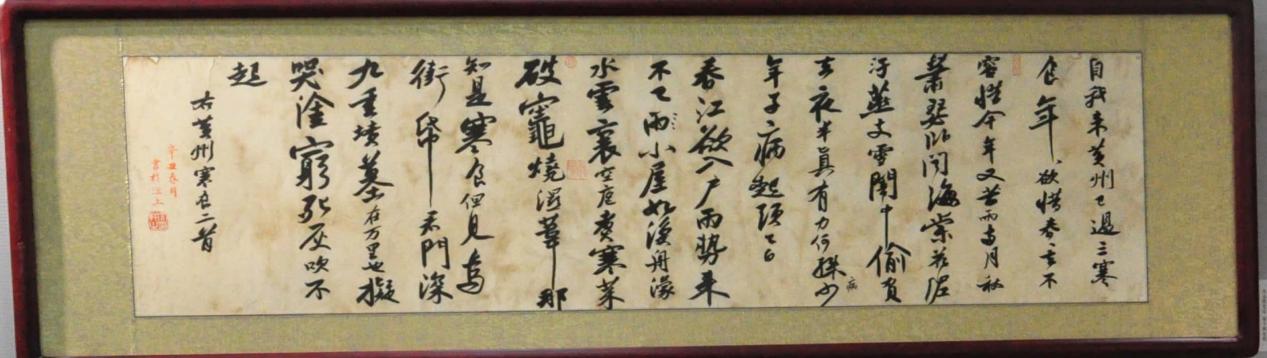 自我来黄州已過三寒
食年〻欲惜春去不
容惜今年又苦雨兩月秋
蕭瑟卧聞海棠花泥
汙燕支雪闇中偷負
去夜半真有力何殊少
病
年子病起頭已白
春江欲入户雨勢来
不已雨小屋如漁舟濛〻
水雲裏空庖煮寒菜
破竈燒濕葦那
知是寒食但見烏
銜帋君門深
九重墳墓在万里也擬
哭塗窮死灰吹不
起
右黄州寒食二首
辛丑春月
書於江上